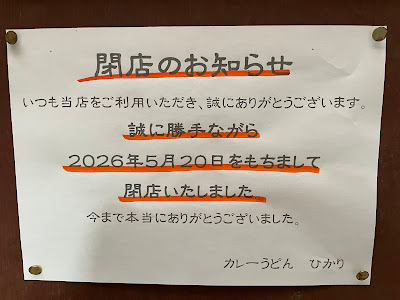 閉店のお知らせ
いつも当店をご利用いただき、誠にありがとうございます。
誠に勝手ながら
2026年5月20日をもちまして
閉店いたしました
今まで本当にありがとうございました。
カレーうどん　ひかり